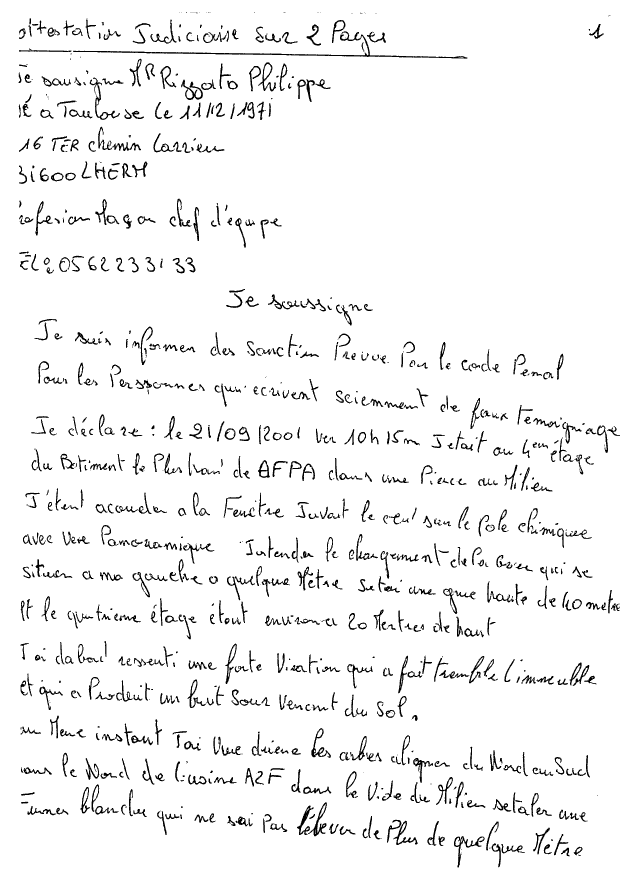 ttestation Judiciaire sur 2 Pages 1
Je sousigne Mr Rizzato Philippe
né a Toulouse le 11/12/1971
16 TER chemin Carrieu
31600 LHERM
rofesion Maçon chef d'équipe
TÉL: 0562233133
Je soussigne
Je suis informer des Sanction Preuve Par le code Penal
Pour les Perssonnes qui ecrivent sciemment de faux temoigniage
Je déclare : le 21/09/2001 ver 10h15m J etait au 4em étage
du Batiment le Plus de AFPA dans une Piece au Milieu
J'étent acouder a la Fenêtre sur le Pole chimique
avec vue Panoramique le changement de la qui se
situer a ma gauche a quelque Mètre une grue haute de 40 metre
Et le quatrieme étage étant environ a 20 Mertres de haut
J ai dabord ressenti une forte Viration qui a fait tremble l'immeuble
et qui a Prodeut un bruit Sour Venant du Sol.
au Meme instant J'ai Vue les arbres aligner du Nord au Sud
dans le Nord de l'usine AZF dans le Vide du Milieu setaler une
Fumer blanche qui ne sai Pas l'élever de Plus de quelque Mètre